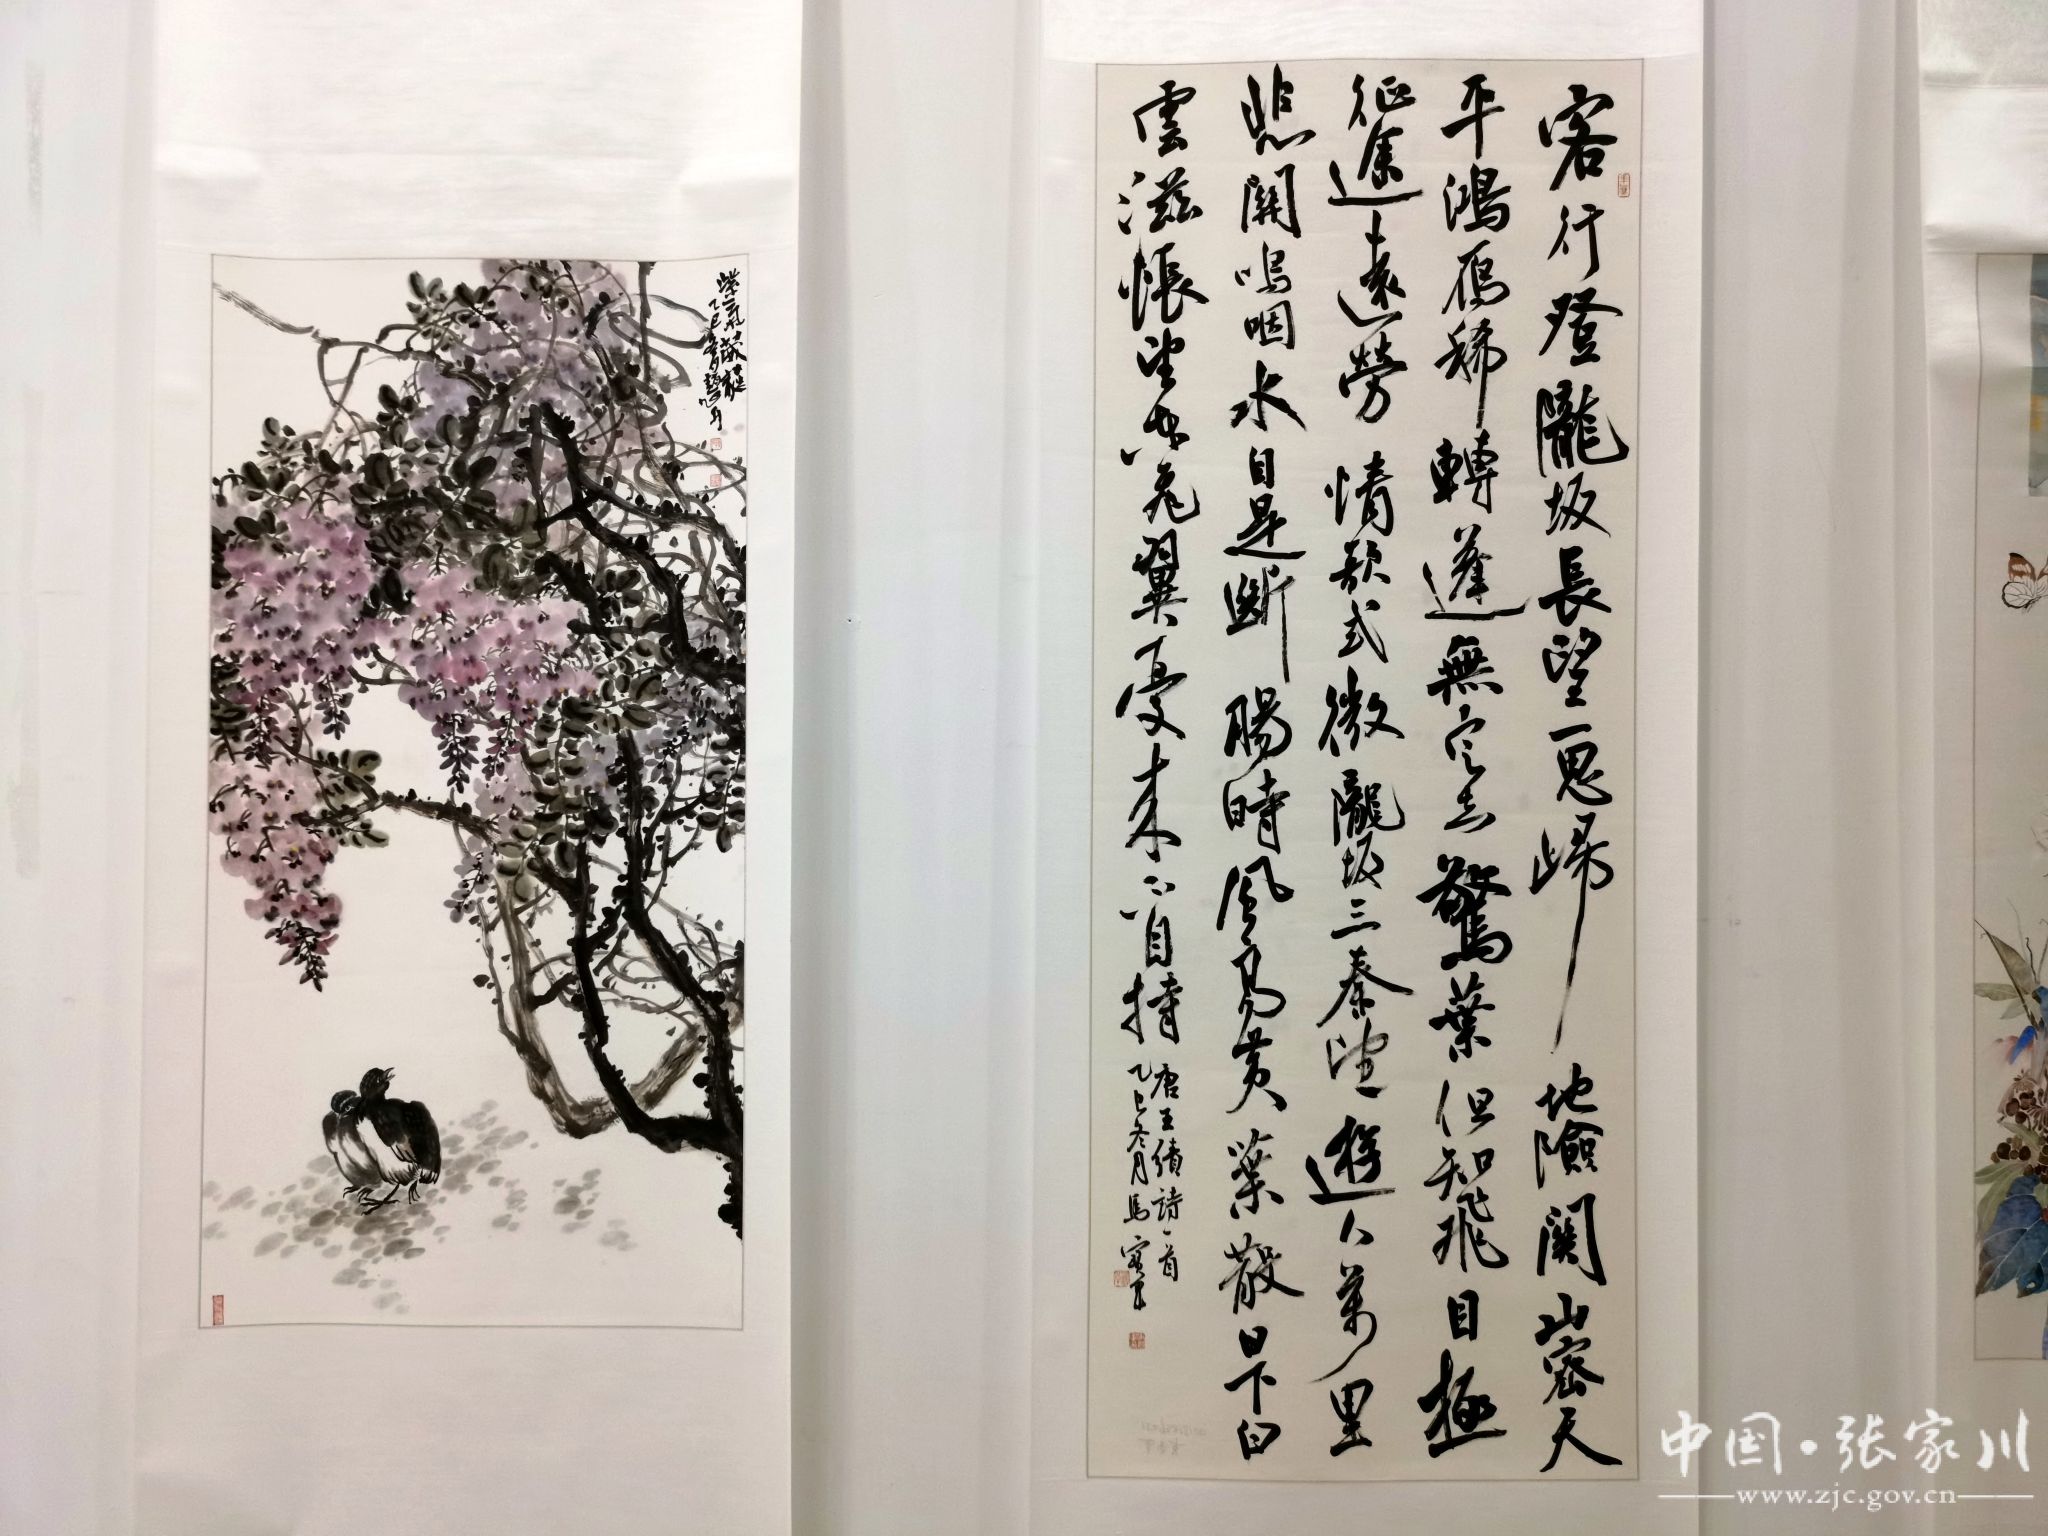 紫氣
乙巳
客行登隴坂長望一思歸地險關山密天
平鴻雁稀轉蓬無定去驚葉但知飛目極
征途遠勞情歌式微隴坂三秦望遊人萬里
悲關嗚咽水自是斷腸時風高黃葉散日下白
雲滋悵望飛翼憂來不自持
唐王績詩一首
乙巳冬月馬寶
中国·张家川
www.zjc.gov.cn